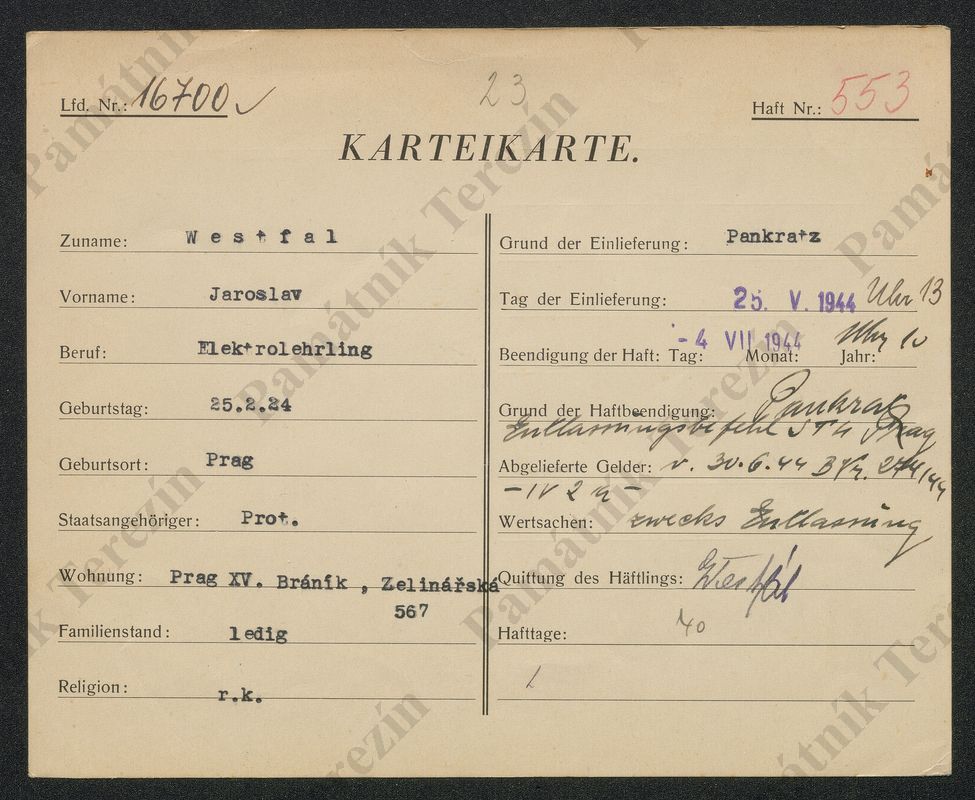 Lfd. Nr.: 16700
23
Haft Nr.: 553
KARTEIKARTE.
Zuname: Westfal
Vorname: Jaroslav
Beruf: Elektrolehrling
Geburtstag: 25.2.24
Geburtsort: Prag
Staatsangehöriger: Prot.
Wohnung: Prag XV. Bráník , Zelinářská
567
Familienstand: ledig
Religion: r.k.
Grund der Einlieferung: Pankratz
Tag der Einlieferung: 25. V. 1944 Uhr 13
- 4 VII 1944 Uhr 10
Beendigung der Haft: Tag: Monat: Jahr:
Grund der Haftbeendigung: Pankratz
Entlassungsbefehl Prag
Abgelieferte Gelder: v. 30.6.44 274/44
- IV 2 -
Wertsachen: zwecks Entlassung
Quittung des Häftlings: Westfál
Hafttage: 40
Památník Terezín